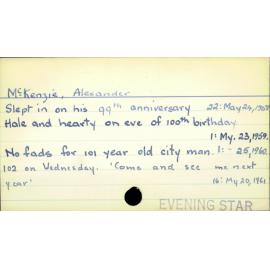 McKenzie, Alexander
Slept in on his 99th anniversary 22: May 24, 1958
Hale and hearty on eve of 100th birthday
1: My. 23, 1959.
No fads for 101 year old city man. 1: - 25, 1960.
102 on Wednesday. 'Come and see me next
year' 16: My 20, 1961.
EVENING STAR